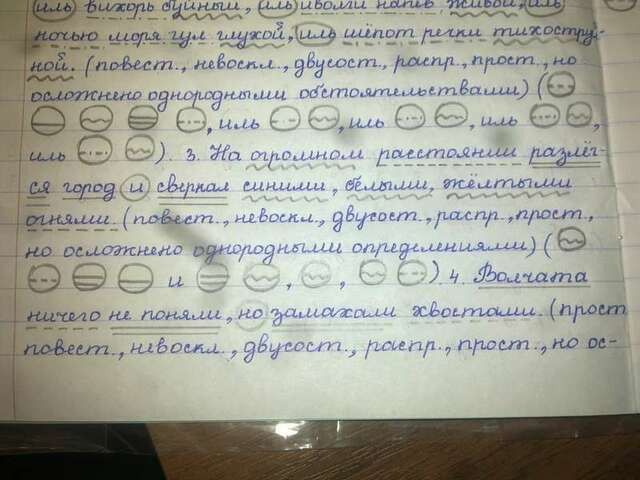 иль вихорь буйный, иль иволги напев живой, иль
ночью моря гул глухой, иль шёпот речки тихостру-
ной. (повест., невоскл., двусост., распр., прост., но
осложнено однородными обстоятельствами) (
, иль , иль , иль ,
иль ). 3. На огромном расстоянии разлёг-
ся город и сверкал синими, белыми, жёлтыми
огнями. (повест., невоскл., двусост., распр., прост.,
но осложнено однородными определениями) (
и , , ) 4. Волчата
ничего не поняли, но замахали хвостами. (прост
повест., невоскл., двусост., распр., прост., но ос-